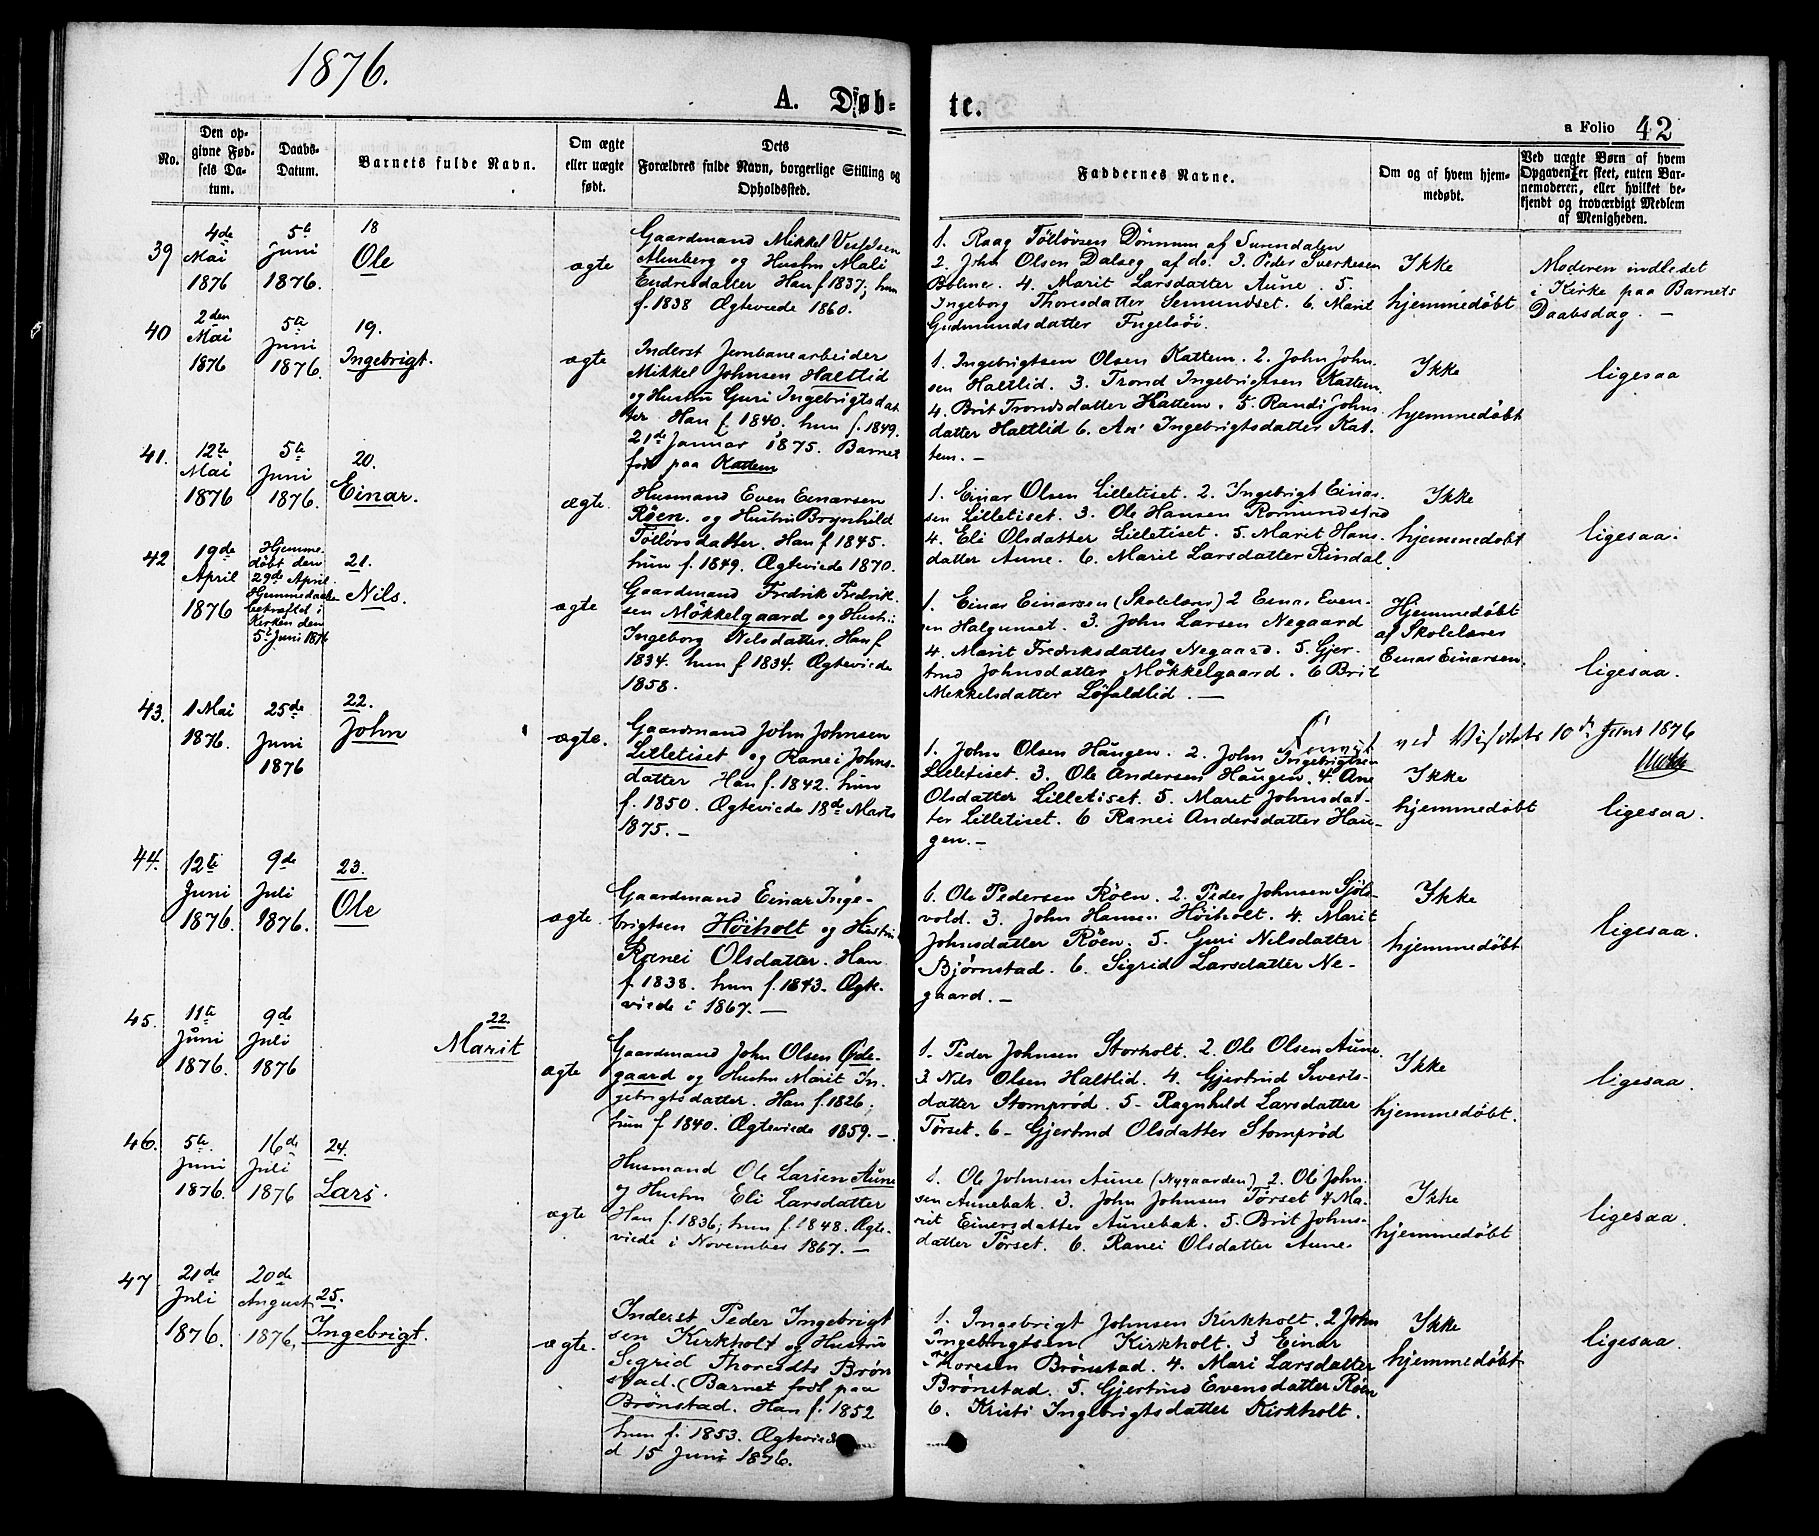 1876.
A. Døb-
te.
a Folio 42
No.
Den op-
givne Fød-
sels Da-
tum.
Daabs-
Datum.
Barnets fulde Navn.
Om ægte
eller uægte
født.
Dets
Forældres fulde Navn, borgerlige Stilling og
Opholdssted.
Faddernes Navne.
Om og af hvem hjem-
medøbt.
Ved uægte Børn af hvem
Opgaven er skeet, enten Bar-
nemoderen, eller hvilket be-
kjendt og troværdigt Medlem
af Menigheden.
39
4de
Mai
1876
5te
Juni
1876.
18
Ole
ægte
Gaardmand Mikkel
og Hustru Mali
Endresdatter Han f 1837; hun
f. 1838 Ægteviede 1860.
1. Raag Tøtløvsen Dønnum af Surendalen
2. John Olsen Dalseg af do. 3. Peder Sverkesen
Bolme. 4. Marit Larsdatter Aune. 5.
Ingeborg Thoresdatter Semundset. 6. Marit
Gudmundsdatter
Ikke
hjemmedøbt
Moderen indledet
i Kirke paa Barnets
Daabsdag. —
40
2den
Mai
1876
5te
Juni
1876.
19.
Ingebrigt.
ægte
Inderst Jernbanearbeider
Mikkel Johnsen Haltlid
og Hustru Guri Ingebrigtsdat-
ter. Han f 1840, hun f. 1849.
21de Januar 1875. Barnet
født paa Kattem
1. Ingebrigtsen Olsen Kattem. 2. John John-
sen Haltlid. 3. Trond Ingebrigtsen Kattem.
4. Brit Trondsdatter Kattem. 5. Randi Johns-
datter Haltlid 6. An Ingebrigtsdatter Kat-
tem. —
Ikke
hjemmedøbt
ligesaa
41.
12te
Mai
1876
5te
Juni
1876.
20.
Einar.
ægte.
Husmand Even Einarsen
Röen. og Hustru Brynhild
Tötlövsdatter. Han f 1845.
hun f. 1849. Ægteviede 1870.
1. Einar Olsen Lilletiset. 2. Ingebrigt Einar-
sen Lilletiset. 3. Ole Hansen Romundstad
4. Eli Olsdatter Lilletiset. 5. Marit Hans-
datter Aune. 6. Marit Larsdatter Rindal.
Ikke
hjemmedøbt
ligesaa.
42
19de
April
1876
Hjemme-
døbt den
29de April
Hjemmedaaben
betræftet i
Kirken den
5te Juni 1876
21.
Nils.
ægte
Gaardmand Fredrik Fredrik-
sen Møkkelgaard og Hustru
Ingeborg Nilsdatter. Han f
1834. hun f 1834. Ægteviede
1858.
1. Einar Einarsen (Skolelærer) 2 Einar Even-
sen Halgunset. 3. John Larsen Negaard
4. Marit Fredriksdatter Negaard. 5. Gjer-
trud Johnsdatter Møkkelgaard. 6 Brit
Mekkelsdatter Løfaldlid. —
Hjemmedøbt
af Skolelærer
Einar Einarsen.
ligesaa.
ved Visitats 10de Juni 1876
43.
1 Mai
1876.
25de
Juni
1876
22.
John
ægte.
Gaardmand John Johnsen
Lilletiset og Ranei Johns-
datter Han f. 1842. hun
f. 1850. Ægteviede 18de Marts
1875. —
1. John Olsen Haugen. 2. John Ingebrigtsen
Lilletiset. 3. Ole Andersen Haugen. 4. Ane
Olsdatter Lilletiset. 5. Marit Johnsdat-
ter Lilletiset. 6 Ranei Andersdatter Hau-
gen. —
Ikke
hjemmedøbt
ligesaa.
44.
12te
Juni
1876.
9de
Juli
1876.
23.
Ole
ægte.
Gaardmand Einar Inge-
brigtsen Høiholt og Hustru
Ranei Olsdatter. Han
f. 1838. hun f. 1843. Ægte-
viede i 1867. —
1. Ole Pedersen Röen. 2. Peder Johnsen Sjöl-
vold. 3. John Hansen Höiholt. 4. Marit
Johnsdatter Röen. 5. Guri Nilsdatter
Bjørnstad. 6. Sigrid Larsdatter Ne-
gaard. —
Ikke
hjemmedøbt
ligesaa.
45.
11te
Juni
1876.
9de
Juli
1876
22.
Marit
ægte
Gaardmand John Olsen Øde-
gaard og Hustru Marit In-
gebrigtsdatter. Han f. 1826;
hun f. 1840. Ægteviede 1859. —
1. Peder Johnsen Storholt. 2. Ole Olsen Aune.
3 Nils Olsen Haltlid. 4. Gjertrud Siverts-
datter Stomprød. 5. Ragnhild Larsdatter
Tørset. 6. Gjertrud Olsdatter Stomprød
Ikke
hjemmedøbt.
ligesaa.
46.
5te
Juni
1876.
16de
Juli
1876
24.
Lars.
ægte
Husmand Ole Larsen Aune
og Hustru Eli Larsdatter
Han f. 1836; hun f. 1848. Ægte-
viede i November 1867. —
1. Ole Johnsen Aune (Nygaarden) 2. Ole John-
sen Aunebak. 3. John Johnsen Tørset 4 Ma-
rit Einersdatter Aunebak. 5. Brit Johns-
datter Tørset. 6. Ranei Olsdatter Aune.
Ikke
hjemmedøbt
ligesaa.
47
21de
Juli
1876.
20de
August
1876.
25.
Ingebrigt.
ægte.
Inderst Peder Ingebrigt
sen Kirkholt og Hustru
Sigrid Thoresdtr Brøn
stad. (Barnet født paa
Brönstad. Han f. 1852
hun f. 1853. Ægteviede
d 15 Juni 1876.
1. Ingebrigt Johnsen Kirkholt. 2 John
Ingebrigtsen Kirkholt. 3 Einar
Thoresen Brönstad. 4. Mari Larsdatter
Brönstad. 5. Gjertrud Evensdatter Röen
6. Kristi Ingebrigtsdatter Kirkholt.
Ikke
hjemmedøbt
ligesaa.